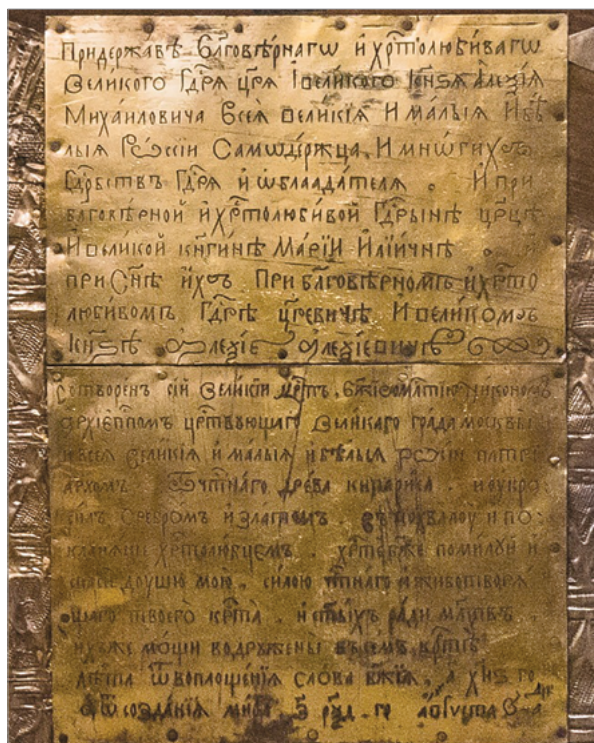 При державѣ бл҃говѣрнагѡ и҆ хрⷭ҇толюбивагѡ
великого гдⷭ҇рѧ цр҃ѧ і великого кн҃ѕѧ Алеѯі́ѧ
Миха́иловича всеѧ̀ великїѧ И малыѧ И бѣ
лыѧ Рѡсїи Самодержца, И мнѡгихъ
гдⷭ҇рствъ Гдⷭ҇рѧ и҆ ѡблаада́телѧ . И при
благовѣрной и҆ хрⷭ҇толюби́вой Гдⷭ҇рынѣ цр҃цѣ
И великой кн҃гинѣ Марїи Илїи́чнѣ .
при Сн҃ѣ и҆хъ При бл҃говѣрномъ и҆ хрⷭ҇то
любивомъ Гдⷭ҇рѣ цр҃евичѣ И великомъ
Кн҃ѕѣ Алеѯїе Алеѯїевичѣ
Сотворенъ сїй великїи крⷭ҇тъ, бж҃їею млⷭ҇тїю Никономъ
архїепⷭ҇пом црⷭ҇твующаго великаго града москвы
и всеѧ великїѧ и малыѧ и бѣлыѧ рѡсїи патрї
архомъ . чтⷭ҇на́го древа кипариса . и оукра
силъ Сребромъ и златомъ . въ похвалоу и по
кланѧнїе хрⷭ҇толюбцемъ . хрⷭ҇те бж҃е помилуй и
спаси доушю мою . силою чтⷭ҇наго и животворѧ
щаго твоего крⷭ҇та . и ст҃ыхъ ради мл҃твъ .
ихже мо́щи водружены въ семъ крⷭ҇тѣ
лѣта ѿ воплощенїѧ слова бж҃їѧ . а҂ х҃н҃ѕ го
а ѿ созданїѧ мира ҂ѕ р҃ѯд . го а́вгуста в а